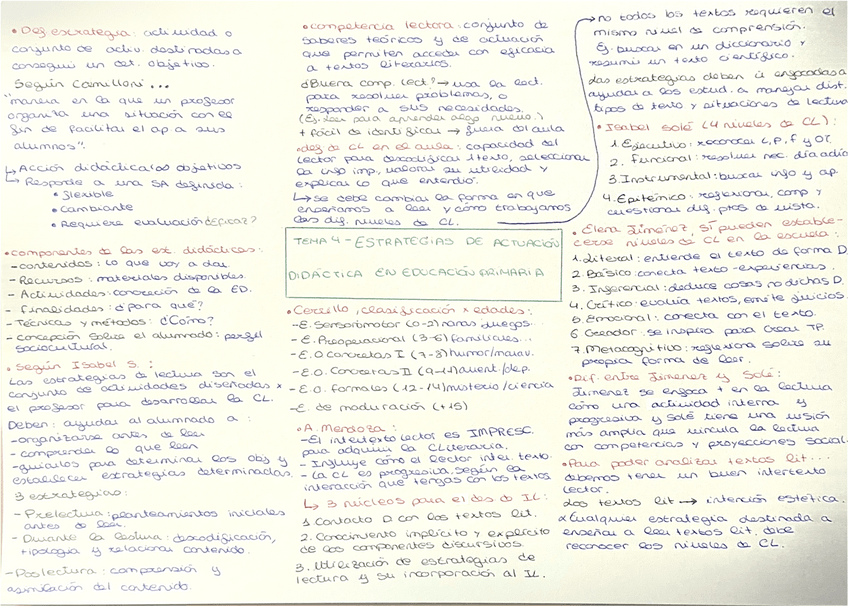 • Def estrategia: actividad o
conjunto de activ. destinadas a
conseguir un det. objetivo.
Según Camilloni...
"manera en la que un profesor
organiza una situación con el
fin de facilitar el ap. a sus
alumnos".
↳ Acción didáctica (as) objetivos
↳ Responde a una SA definida:
• Flexible
• Cambiante
• Requiere evaluación ¿Eficaz?
• Componentes de las est. didácticas:
- contenidos: lo que voy a dar.
- Recursos: materiales disponibles.
- Actividades: concreción de la ED.
- Finalidades: ¿para qué?
- Técnicas y métodos: ¿Cómo?
- Concepción sobre el alumnado: perfil
sociocultural.
• Según Isabel S.:
Las estrategias de lectura son el
conjunto de actividades diseñadas x
el profesor para desarrollar la CL.
Deben: ayudar al alumnado a:
- organizarse antes de leer
- comprender lo que leen
- guiarlos para determinar los obj y
establecer estrategias determinadas.
3 estrategias:
- Prelectura: planteamientos iniciales
antes de leer.
- Durante la lectura: descodificación,
tipología y relacionar contenido.
- Poslectura: comprensión y
asimilación del contenido.
• Competencia lectora: conjunto de
saberes teóricos y de actuación
que permiten acceder con eficacia
a textos literarios.
¿Buena comp. lect.? → usa la lect.
para resolver problemas, o
responder a sus necesidades.
(Ej. leer para aprender algo nuevo.)
+ fácil de identificar → fuera del aula
• def de CL en el aula: capacidad del
lector para descodificar 1 texto, seleccionar
la info imp, valorar su utilidad y
explicar lo que entendió.
↳ se debe cambiar la forma en que
enseñamos a leer y cómo trabajamos
los dif. niveles de CL.
TEMA 4 - ESTRATEGIAS DE ACTUACIÓN
DIDÁCTICA EN EDUCACIÓN PRIMARIA
• Cerrillo, clasificación x edades:
- E. Sensoriomotor (0-2) nanas juegos...
- E. Preoperacional (3-6) familiares...
- E. O Concretas I (7-8) humor/marav.
- E. O. Concretas II (9-11) avent./dep.
- E. O. formales (12-14) misterio/ciencia
- E. de maduración (+15)
• A. Mendoza:
- El intertexto lector es IMPRESC.
para adquirir la C Literaria.
- Influye cómo el lector inter. texto.
- La CL es progresiva según la
interacción que tengas con los textos
↳ 3 núcleos para el des do IL:
1. Contacto D con los textos lit.
2. Conocimiento implícito y explícito
de los componentes discursivos.
3. Utilización de estrategias de
lectura y su incorporación al IL.
→ no todos los textos requieren el
mismo nivel de comprensión.
Ej. buscar en un diccionario y
resumir un texto científico.
Las estrategias deben ir enfocadas a
ayudar a los estud. a manejar dist.
tipos de texto y situaciones de lectura
• Isabel Solé (4 niveles de CL):
1. Ejecutivo: reconocer L, P, F y OT.
2. Funcional: resolver nec. día a día
3. Instrumental: buscar info y ap.
4. Epistémico: reflexionar, comp y
cuestionar dif. ptos de vista.
• Elena Jiménez, sí pueden estable-
cerse niveles de CL en la escuela:
1. Literal: entiende el texto de forma D.
2. Básico: conecta texto-experiencias.
3. Inferencial: deduce cosas no dichas D.
4. Crítico: evalúa textos, emite juicios.
5. Emocional: conecta con el texto.
6. Creador: se inspira para crear TP.
7. Metacognitivo: reflexiona sobre su
propia forma de leer.
• Dif. entre Jimenez y Solé:
Jimenez se enfoca + en la lectura
cómo una actividad interna y
progresiva y Solé tiene una visión
más amplia que vincula la lectura
con competencias y proyecciones social.
• Para poder analizar textos lit...
debemos tener un buen intertexto
lector.
Los textos lit → intención estética.
* Cualquier estrategia destinada a
enseñar a leer textos lit. debe
reconocer los niveles de CL.